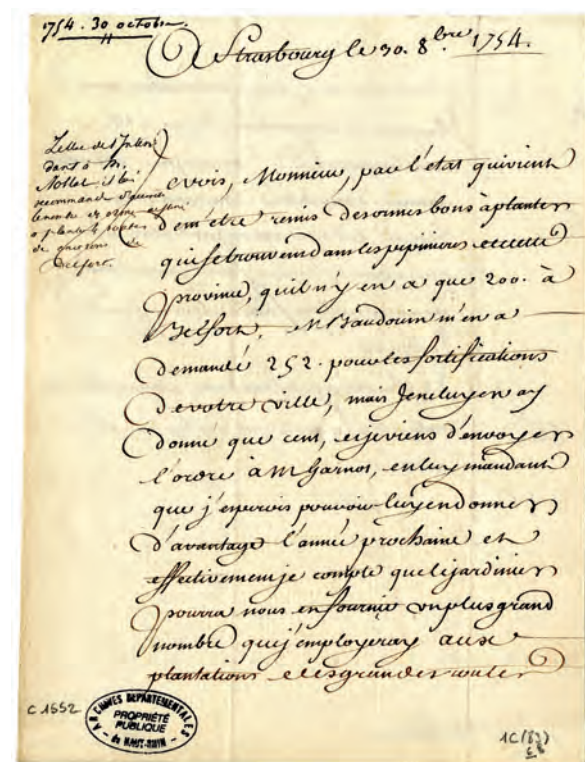 1754. 30 octobre
Strasbourg le 30. 8.bre 1754.
Lettre de l'Inten
dant à M.
Nollet il lui
recommand
de planter
de
Belfort.
Je vois, Monsieur, par l'etat qui vient
dem'etre remis des ormes bons à planter
qui se trouvent dans les pepinieres de cette
province, qu'il n'y en a que 200. à
Belfort. M Baudouin m'en a
demandé 252. pour les fortifications
de votre ville, mais Je ne luy en ay
donné que cent, et je viens d'envoyer
l'ordre à M Garnot, en luy mandant
que j'esperois pouvoir luy en donner
d'avantage l'année prochaine et
effectivement je compte que le jardinier
pourra nous en fournir un plus grand
nombre que j'employeray aux
plantations des grandes routes
C 1552
ARCHIVES DEPARTEMENTALES
PROPRIÉTÉ
PUBLIQUE
du HAUT-RHIN
1C (89)